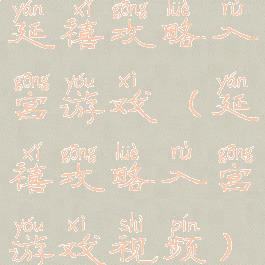 yán xǐ gōng lüè rù
延禧攻略入
gōng yóu xì yán
宫游戏（延
xǐ gōng lüè rù gōng
禧攻略入宫
yóu xì shì pín
游戏视频）